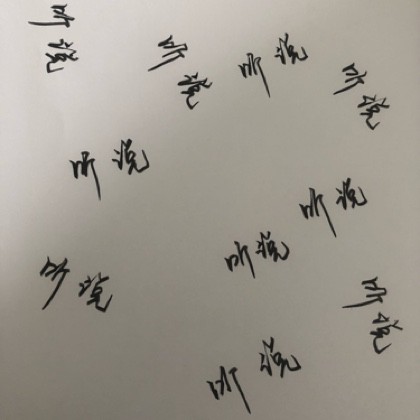 听说
听说
听说
听说
听说
听说
听说
听说
听说
听说